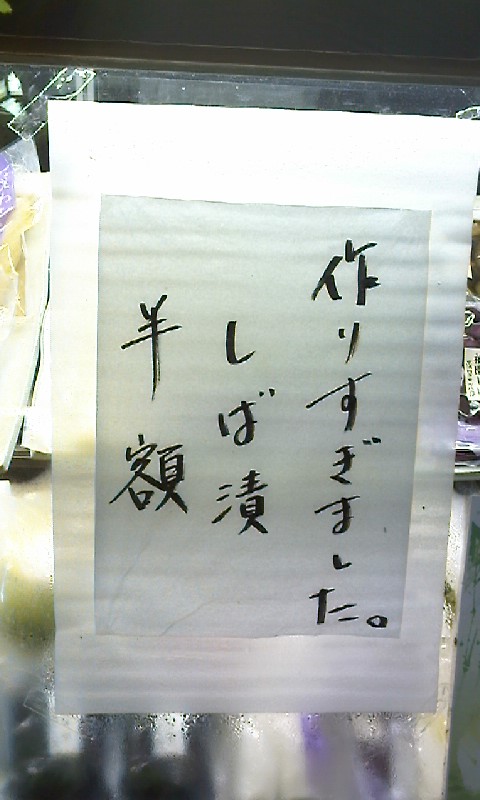 作りすぎました。
しば漬
半額